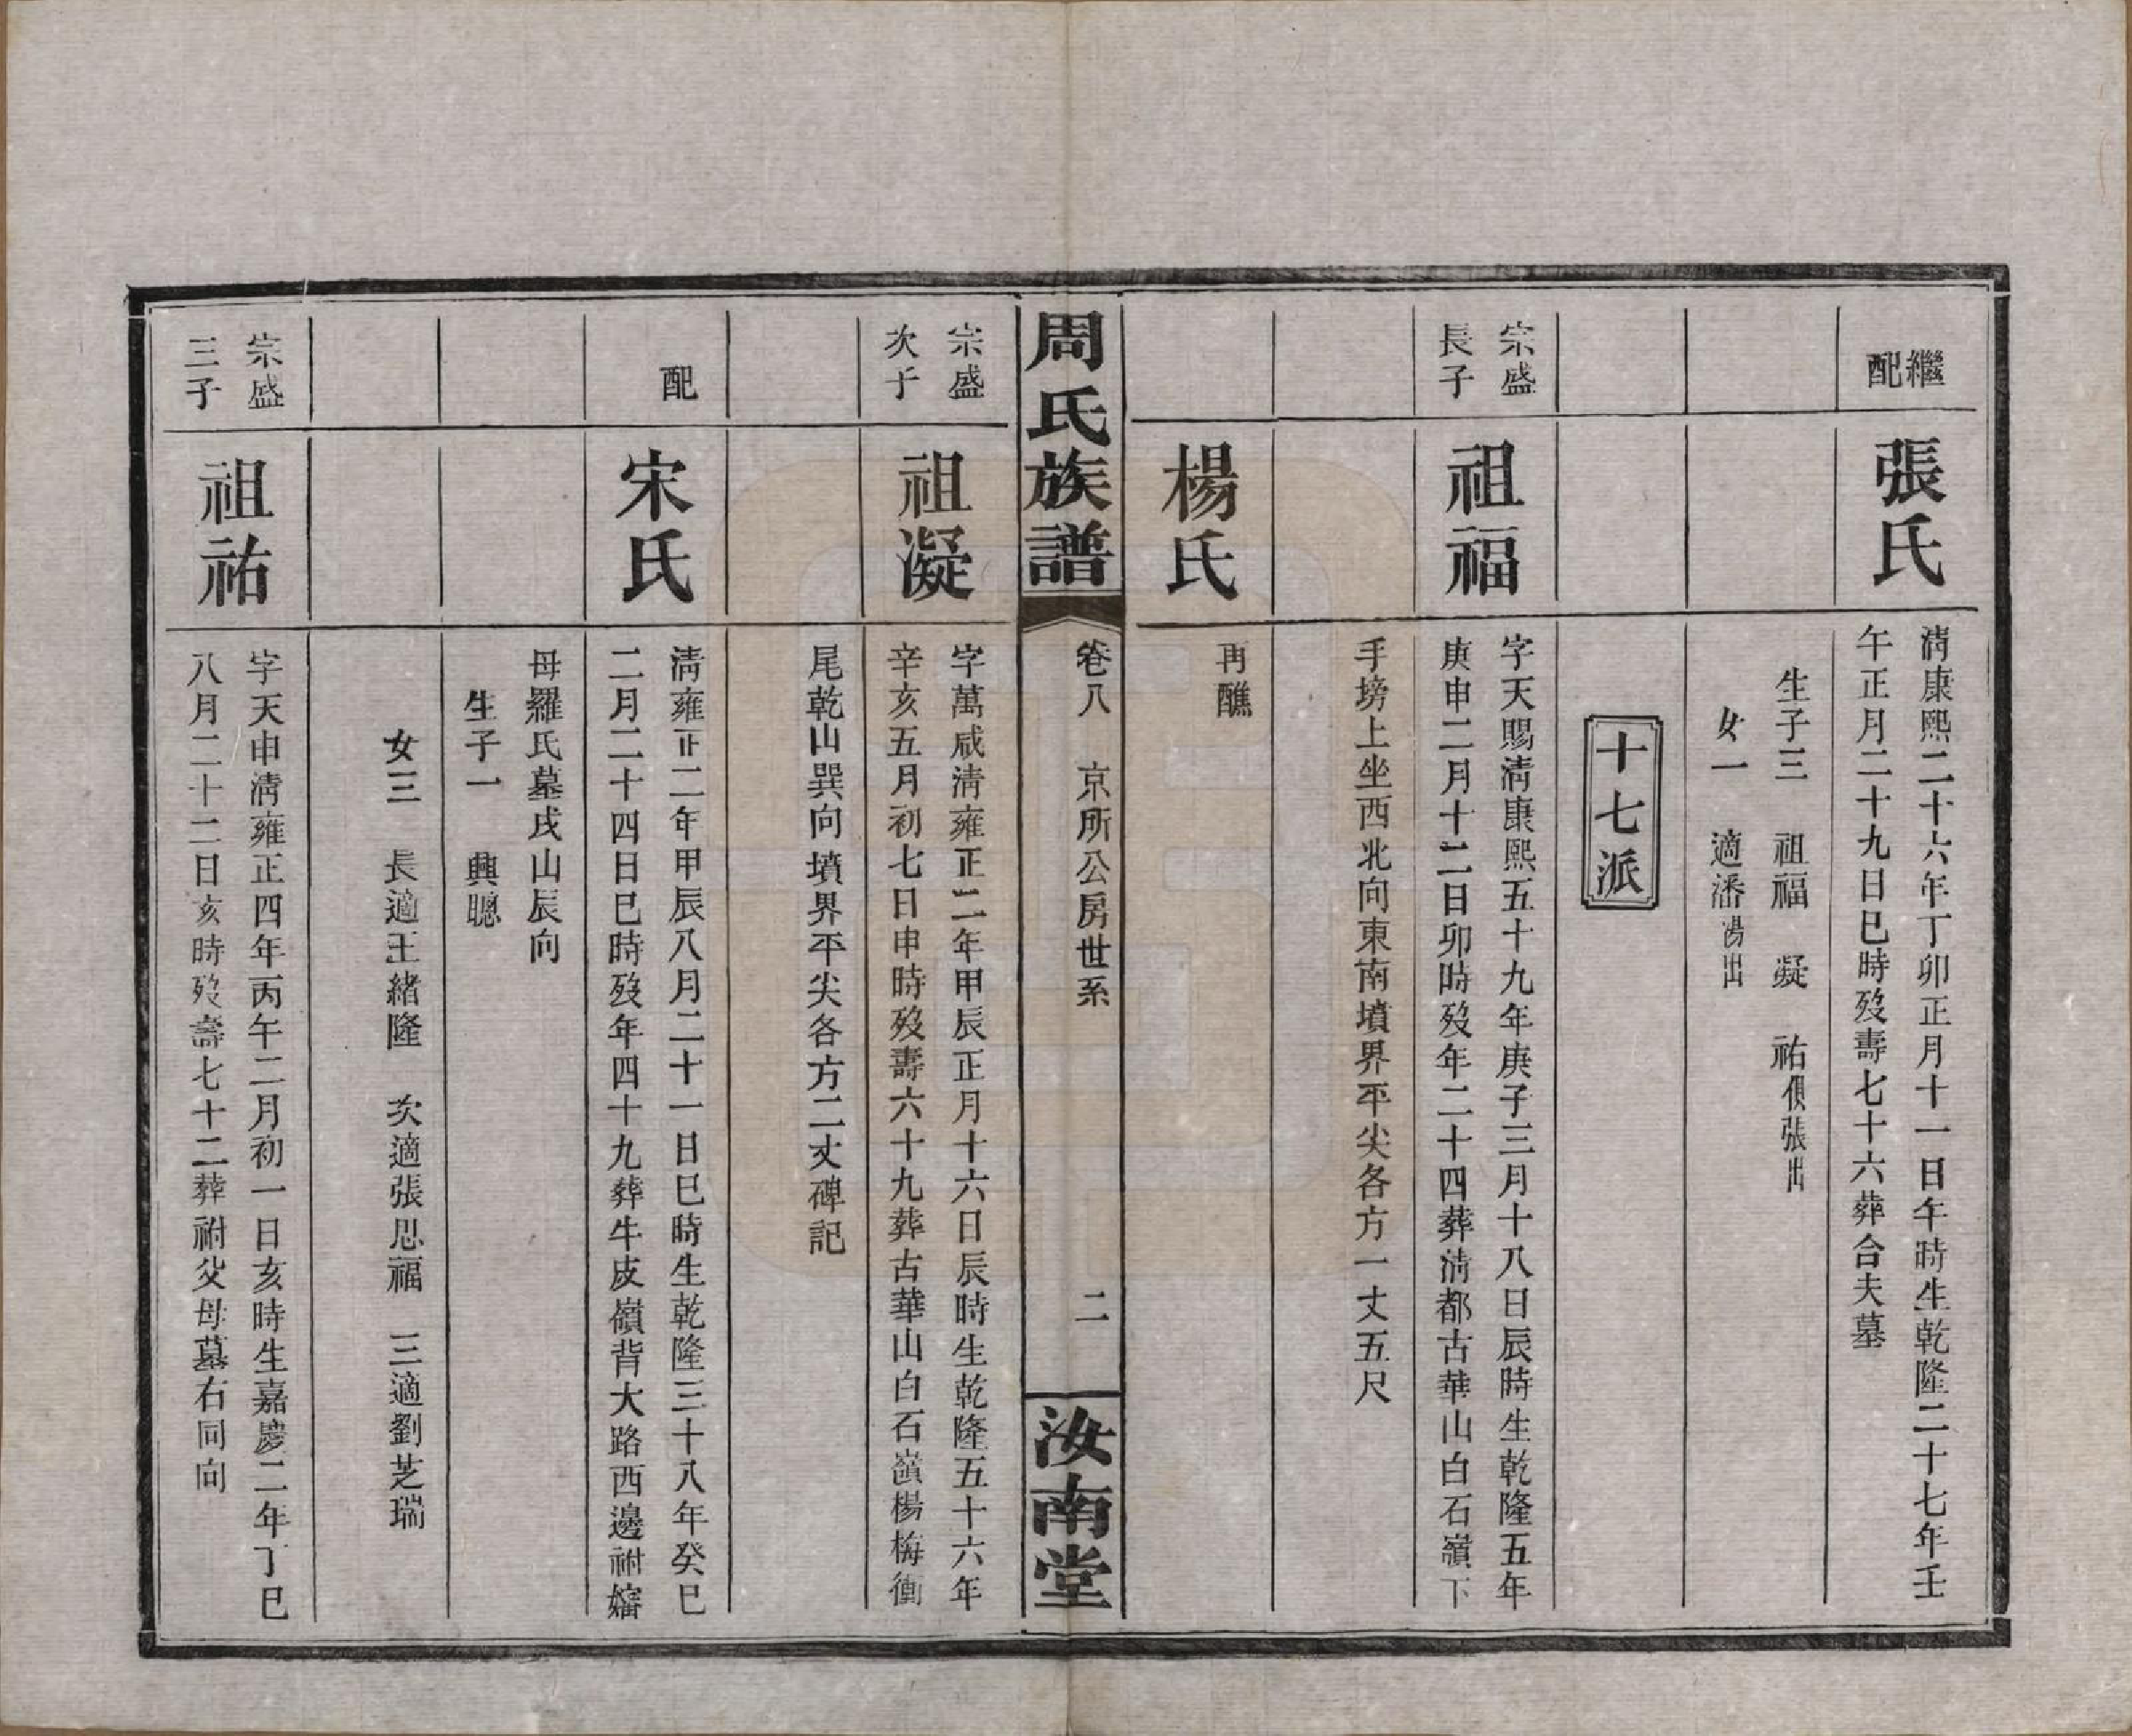 繼配
張氏
淸康熙二十六年丁卯正月十一日午時生乾隆二十七年壬
午正月二十九日巳時歿壽七十六葬合夫墓
生子三　祖福　凝　祐俱張出
女一　適潘楊出
十七派
宗盛
長子
祖福
字天賜淸康熙五十九年庚子三月十八日辰時生乾隆五年
庚申二月十二日卯時歿年二十四葬淸都古華山白石嶺下
手塝上坐西北向東南墳界平尖各方一丈五尺
楊氏
再醮
周氏族譜
卷八　京所公房世系
二
汝南堂
宗盛
次子
祖凝
字萬咸淸雍正二年甲辰正月十六日辰時生乾隆五十六年
辛亥五月初七日申時歿壽六十九葬古華山白石嶺楊梅衝
尾乾山巽向墳界平尖各方二丈碑記
配
宋氏
淸雍正二年甲辰八月二十一日巳時生乾隆三十八年癸巳
二月二十四日巳時歿年四十九葬牛皮嶺背大路西邊祔嬸
母羅氏墓戌山辰向
生子一　興聰
女三　長適王緒隆　次適張思福　三適劉芝瑞
宗盛
三子
祖祐
字天申淸雍正四年丙午二月初一日亥時生嘉慶二年丁巳
八月二十二日亥時歿壽七十二葬祔父母墓右同向